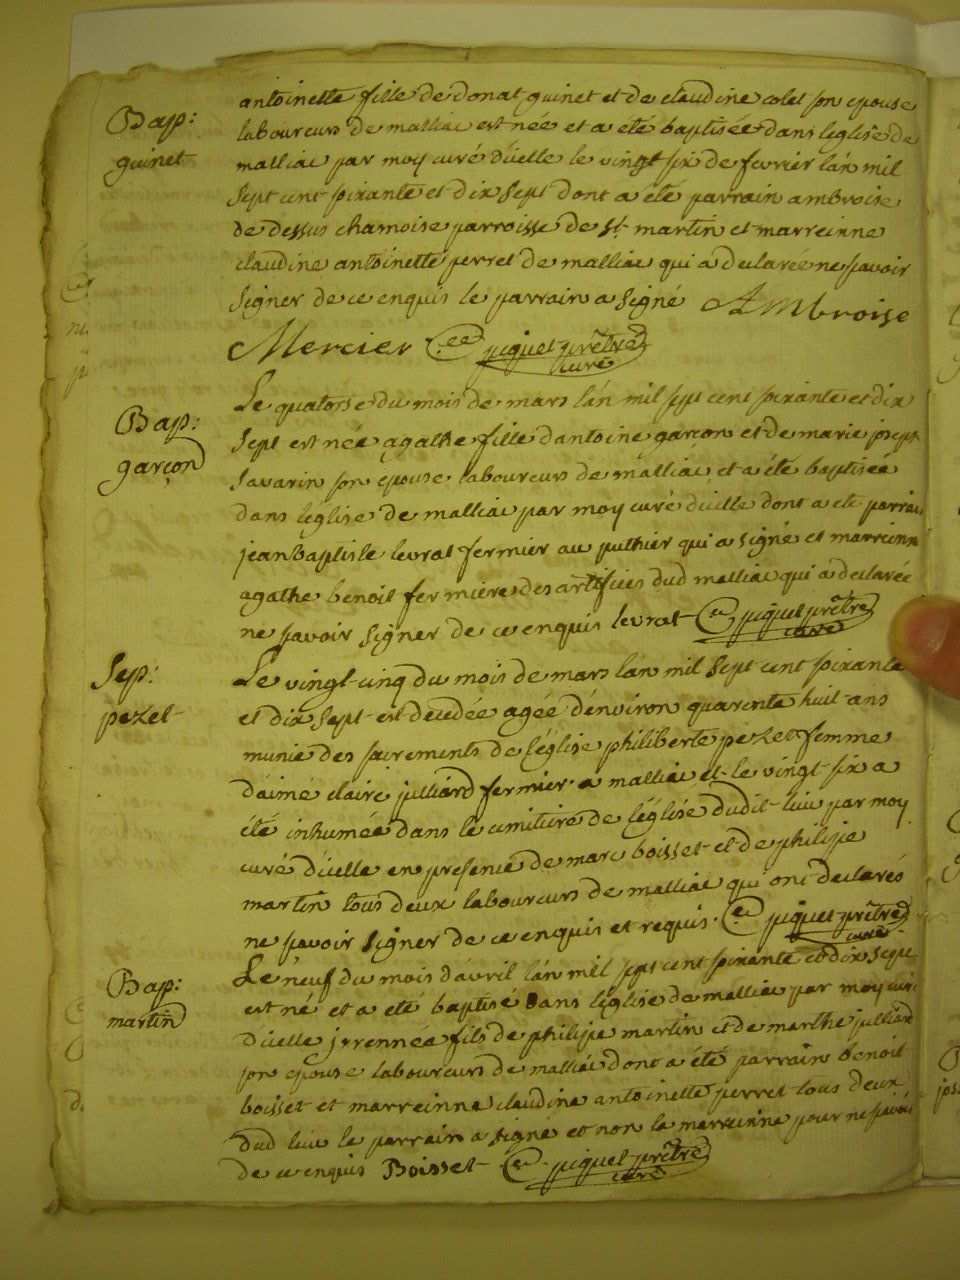 Bap:
guinet
antoinette fille de donat guinet et de claudine colet son epouse
laboureurs de malliac est née et a été baptisée dans leglise de
malliac par moy curé dicelle le vingt six de fevrier lan mil
sept cent soixante et dix sept dont a été parrain ambroise
de dessus chamoise parroisse de st martin et marreinne
claudine antoinette perret de malliac qui a declarée ne savoir
signer de ce enquis le parrain a signé Ambroise
Mercier piquet prêtre
curé
Bap:
garçon
Le quatorse du mois de mars lan mil sept cent soixante et dix
sept est née agathe fille dantoine garçon et de marie josept
savarin son epouse laboureurs de malliac et a été baptisée
dans leglise de malliac par moy curé dicelle dont a eté parrain
jean baptiste levrat fermier au puthier qui a signé et marreinne
agathe benoit fermiere des artifices dud malliac qui a declarée
ne savoir signer de ce enquis levrat piquet prêtre
curé
Sep:
pezet
Le vingt cinq du mois de mars lan mil sept cent soixante
et dix sept est decedée agée d'environ quarente huit ans
munie des sacrements de leglise philiberte pezet femme
daimé claire julliard fermier a malliac et le vingt six a
été inhumée dans le cimitiere de leglise dudit lieu par moy
curé dicelle en presence de marc boisset et de philipe
martin tous deux laboureurs de malliac qui ont declarés
ne savoir signer de ce enquis et requis. piquet prêtre
curé
Bap:
martin
Le neuf du mois d'avril lan mil sept cent soixante et dix sept
est né et a eté baptisé dans leglise de malliac par moy curé
dicelle jrennée fils de philipe martin et de marthe julliard
son epouse laboureurs de malliac dont a été parrain benoit
boisset et marreinne claudine antoinette perret tous deux
dud lieu le parrain a signé et non la marreinne pour ne savoir
de ce enquis Boisset piquet prêtre
curé